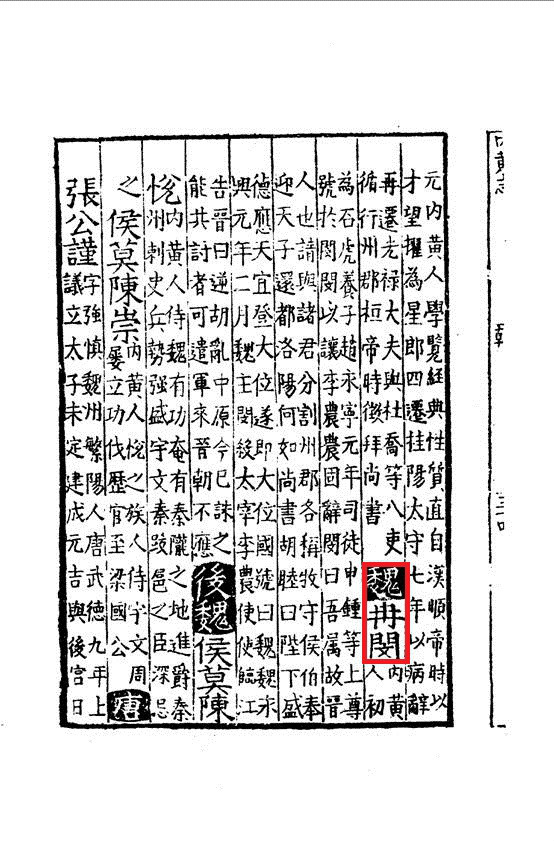 元内黄人學覽經典性質直自漢順帝時以
才望擢為星郎四遷桂陽太守七年以病辭
再遷光禄大夫與杜喬等八吏
循行州郡桓帝時後拜尚書
魏冉閔
内黄
人初
為石虎養子趙永寧元年司徒申鍾等上尊
號於閔閔以讓李農農固辭閔曰吾属故晉
人也請與諸君分割州郡各稱牧守侯伯奉
迎天子還都洛陽何如尚書胡睦曰陛下盛
德應天宜登大位遂即大位國號曰魏魏永
興元年二月魏主閔殺太宰李農使使臨江
告晉曰逆胡亂中原今已誅之
能共討者可遣軍來晉朝不應
後魏侯莫陳
悅
内黄人侍魏有功奄有秦隴之地進爵秦
洲刺史兵勢强盛宇文秦跤邑之臣深忌
之
侯莫陳崇
内黄人悅之族人侍宇文周
屡立功伐歷官至梁國公
唐
張公謹
字强慎魏州繁陽人唐武德九年上
議立太子未定建成元吉與後宫日